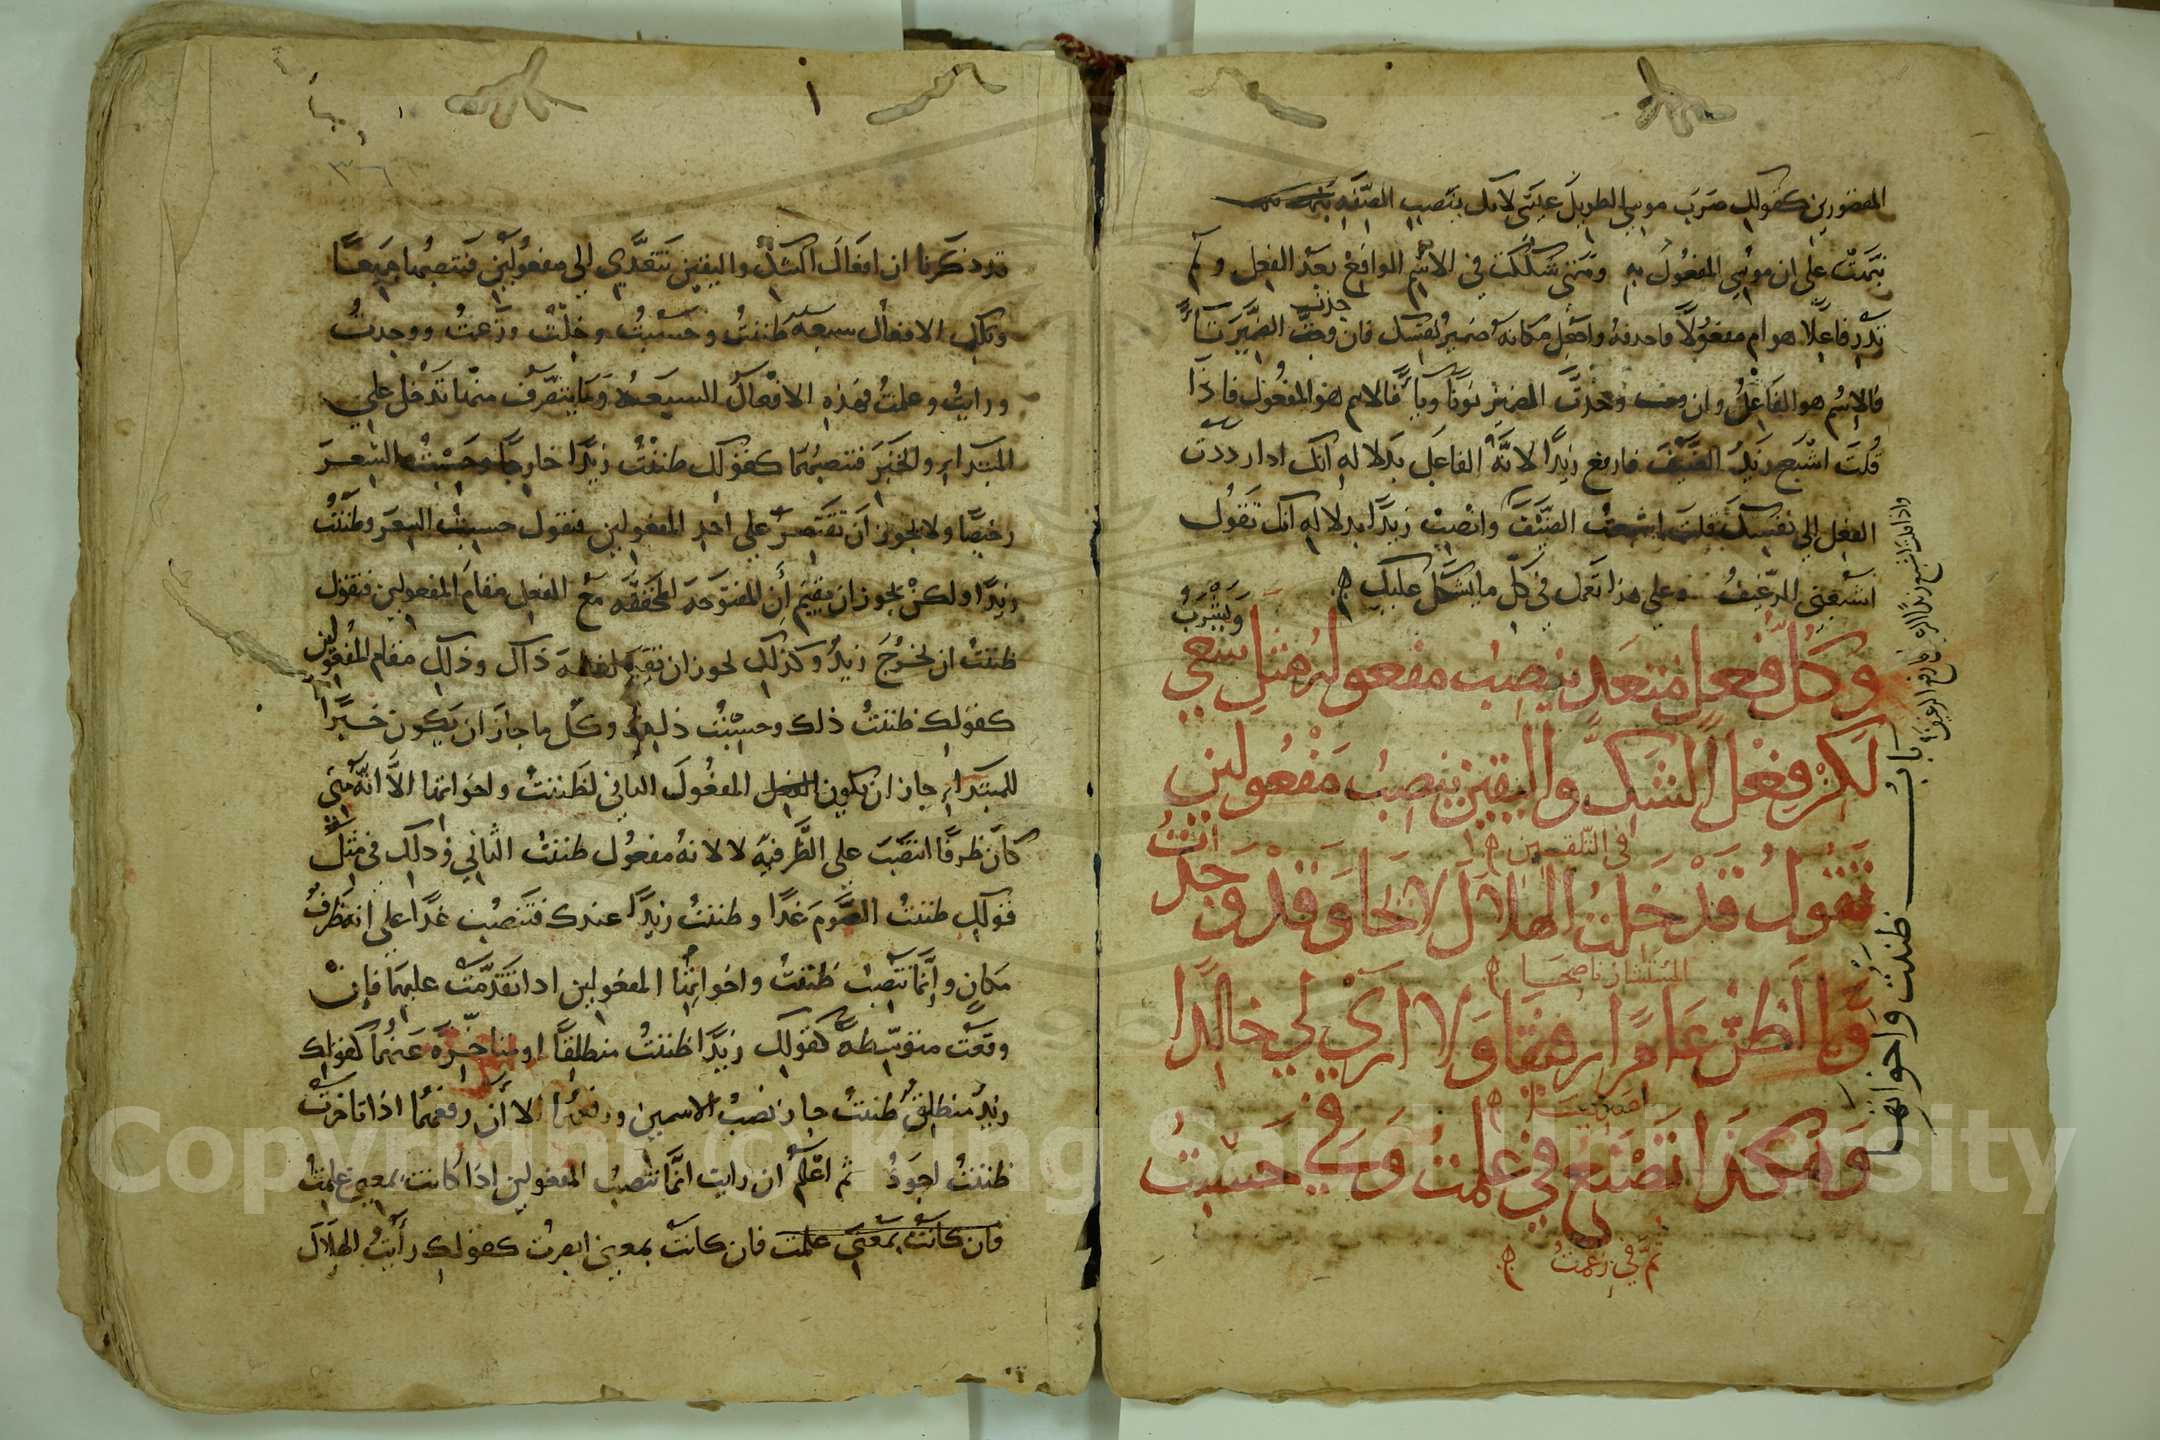 المقصورين كقولك ضرب موسى الطويل عيسى لانك بنصب الصفة
نبهت على ان موسى المفعول به ومتى شككت في الاسم الواقع بعد الفعل ولم
تدر فاعلا هو ام مفعولا فاحذفه واجعل مكانه ضمير نفسك فان وجدت الضمير تاء
فالاسم هو الفاعل وان وجدت المضمر نونا وياء فالاسم هو المفعول فاذا
قلت اشبع زيد الضيف فارفع زيدا لانه الفاعل بدلالة انك اذا رددت
الفعل الى نفسك قلت اشبعت الضيف وانصب زيدا بدلالة انك تقول
اشبعني الرغيف وعلى هذا تعمل في كل ما يشكل عليك
ويشرب
وكل فعل متعد ينصب مفعوله مثل سقى
لكن فعل الشك واليقين ينصب مفعولين
في التلقين
تقول قد خلت الهلال لائحا وقد وجدت
المستشار ناصحا
وما اظن عامرا رفيقا ولا ارى لي خالدا
صديقا
وهكذا تصنع في علمت وفي حسبت
ثم في زعمت
باب ظننت واخواتها
قد ذكرنا ان افعال الشك واليقين تتعدي الى مفعولين فتنصبهما جميعا
وتلك الافعال سبعه ظننت وحسبت وخلت وزعمت ووجدت
ورايت وعلمت فهذه الافعال السبعة وما يتصرف منها تدخل على
المبتداء والخبر فتنصبهما كقولك ظننت زيدا خارجا وحسبت السعر
رخيصا ولا يجوز ان تقتصر على احد المفعولين فتقول حسبت السعر وظننت
زيدا ولكن يجوز ان تقيم أن المفتوحة المخففه مع الفعل مقام المفعولين فتقول
ظننت ان يخرج زيد وكذلك يجوز ان تقيم لفظة ذاك وذلك مقام المفعولين
كقولك ظننت ذلك وحسبت ذلك وكل ما جاز ان يكون خبرا
للمبتداء جاز ان يكون المفعول الثاني لظننت واخواتها الا انه متى
كان ظرفا انتصب على الظرفيه لا لانه مفعول ظننت الثاني وذلك في مثل
قولك ظننت الصوم غدا وظننت زيدا عندك فتنصب غدا على انه ظرف
مكان وانما تنصب ظننت واخواتها المفعولين اذا تقدمت عليهما فان
وقعت متوسطة كقولك زيدا ظننت منطلقا او متاخرة عنهما كقولك
زيد منطلق ظننت جاز نصب الاسمين ورفعهما الا أن رفعهما اذا تاخرت
ظننت اجود ثم اعلم ان رايت انما تنصب المفعولين اذا كانت بمعنى علمت
فان كانت بمعنى علمت فان كانت بمعنى ابصرت كقولك رأيت الهلال